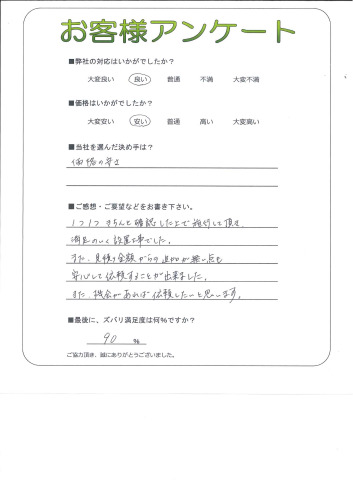 お客様アンケート
■弊社の対応はいかがでしたか?
大変良い 良い 普通 不満 大変不満
■価格はいかがでしたか?
大変安い 安い 普通 高い 大変高い
■当社を選んだ決め手は?
価格の安さ
■ご感想・ご要望などをお書き下さい。
1つ1つきちんと確認した上で施行して頂き、
満足のいく設置工事でした。
また、見積り金額からの追加が無い点も
安心して依頼することが出来ました。
また機会があれば依頼したいと思います。
■最後に、ズバリ満足度は何%ですか?
90 %
ご協力頂き、誠にありがとうございました。